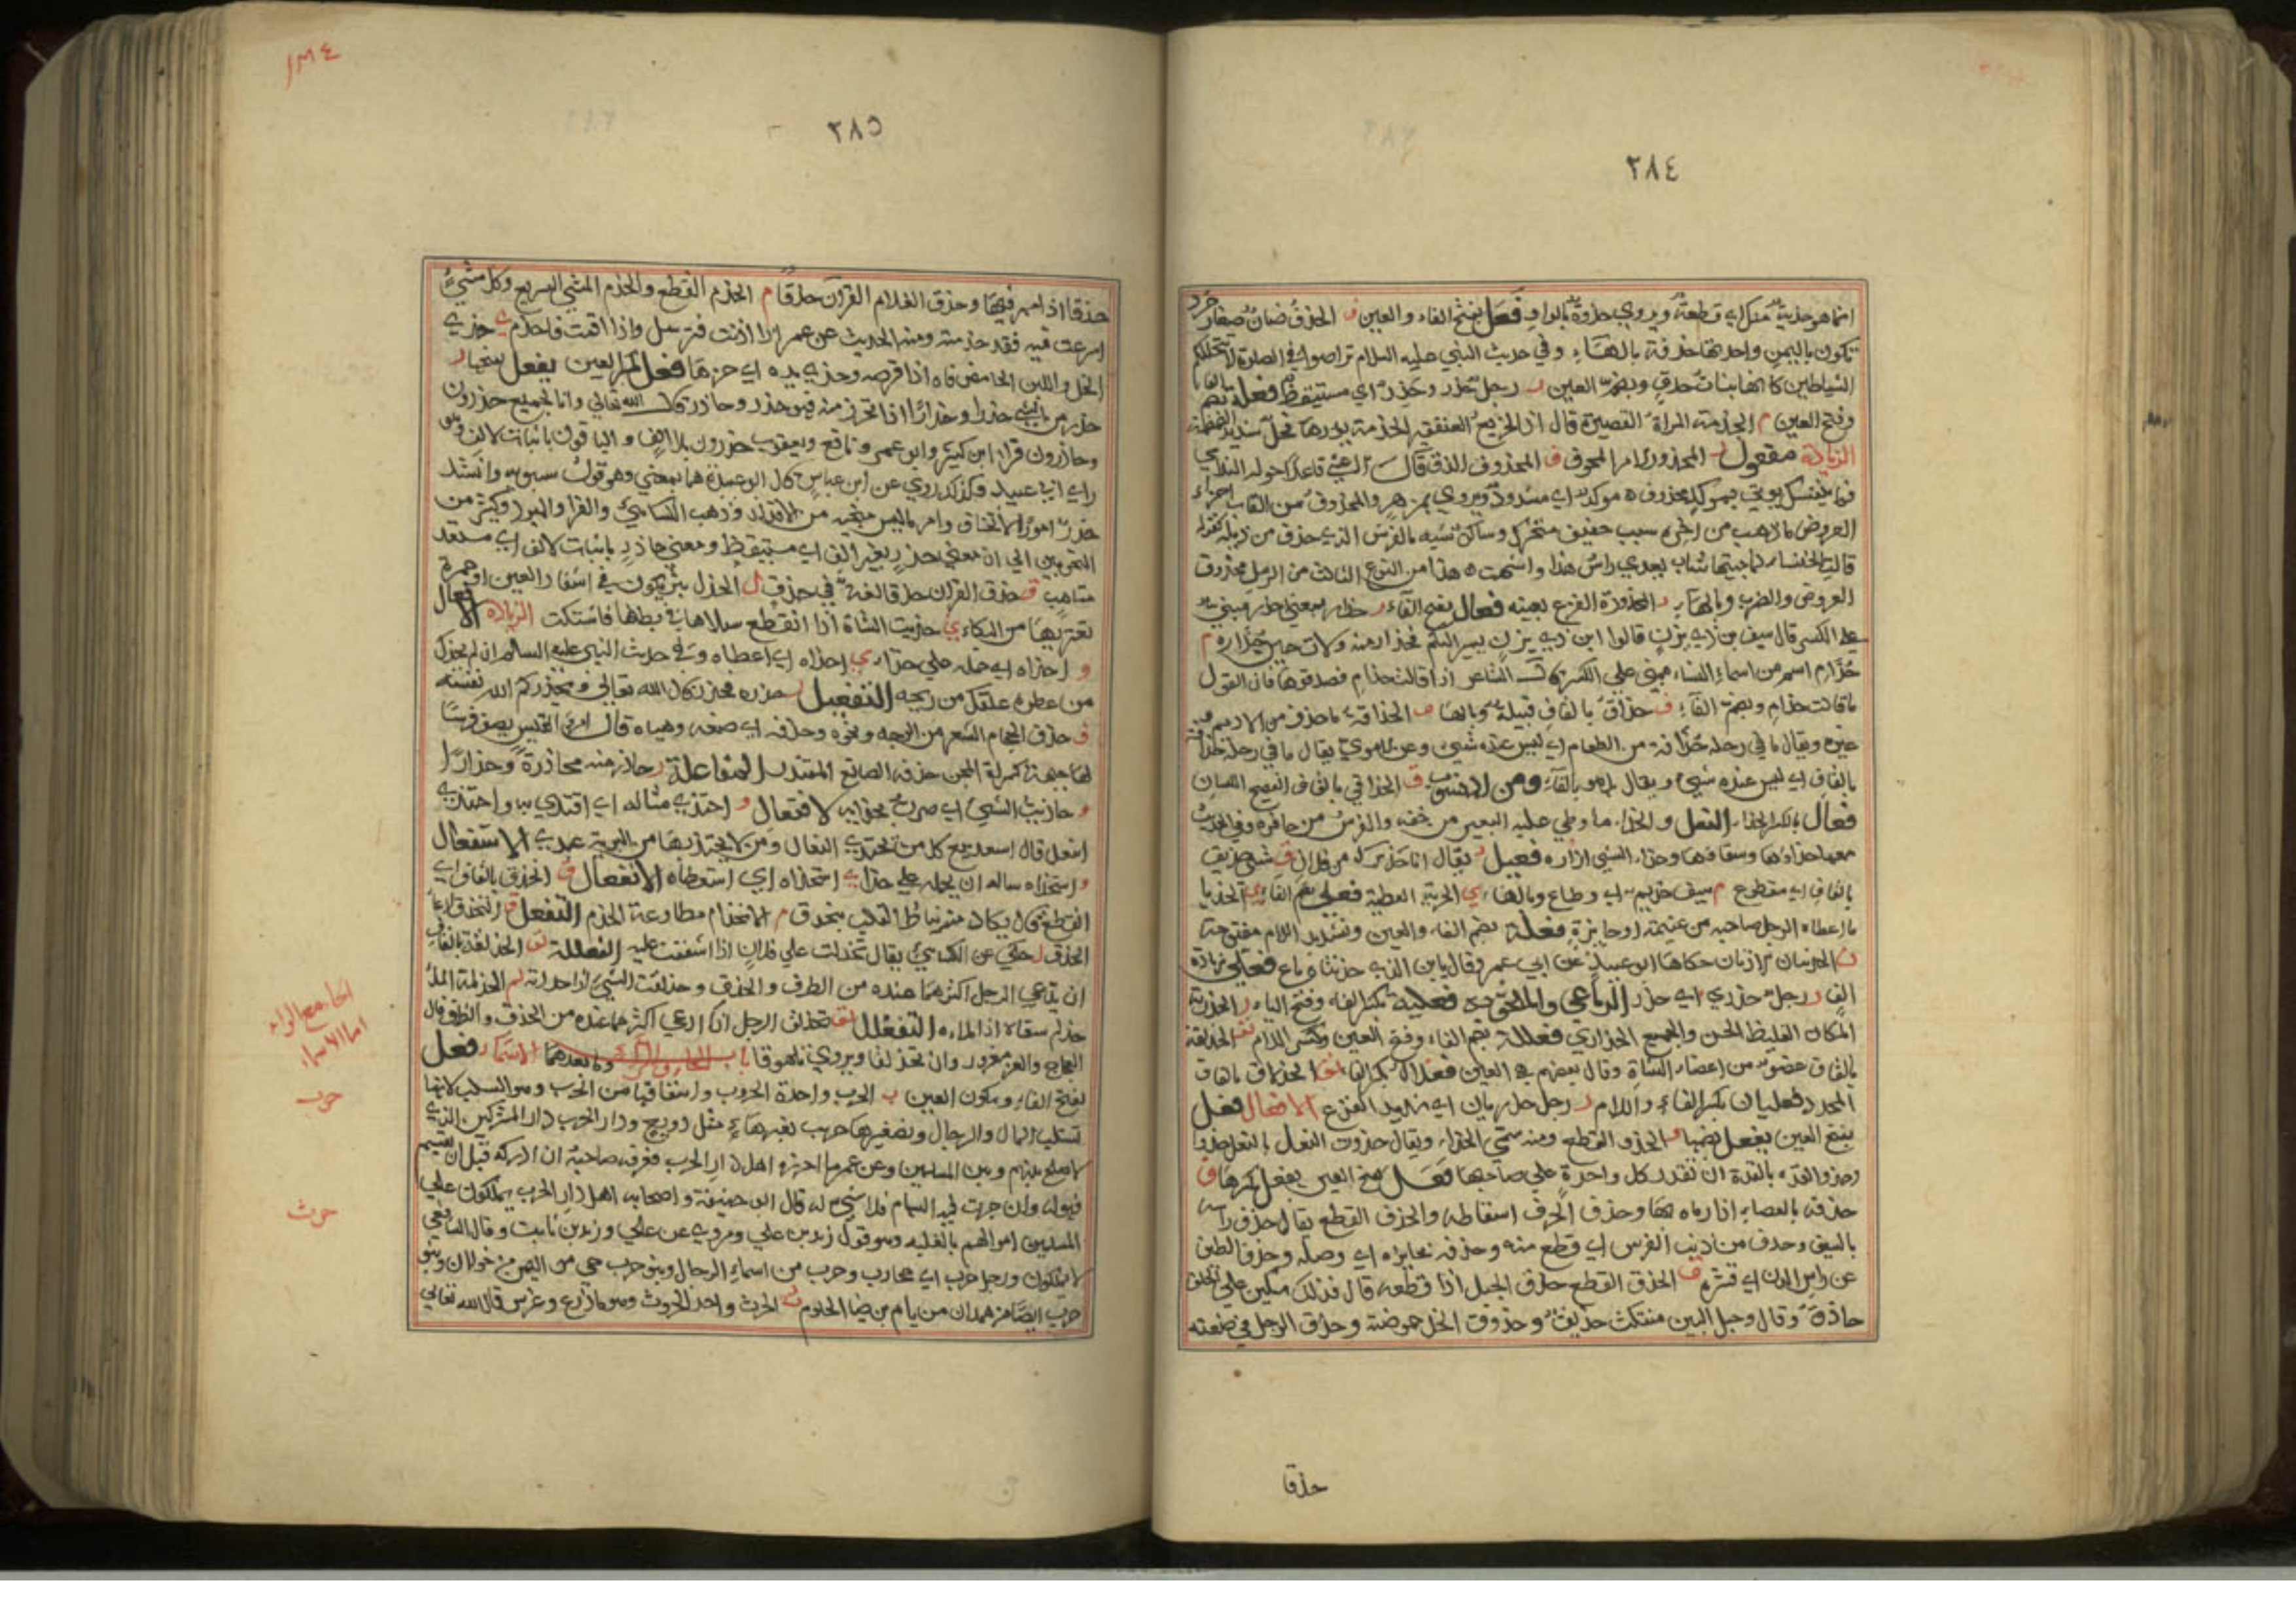 ٢٨٤
انما هو حذية منك اي قطعة ويروى حذوة بالواو فَعَل بفتح الفاء والعين ف الحذف ضان صغار جرد
تكون باليمن واحدتها حذفة بالهاء وفي حديث النبي عليه السلام تراصوا في الصلاة لا تتخللكم
الشياطين كانها بنات حذف وبضم العين ر رجل حذر وحذر اي مستيقظ فعلة بضم الفاء
وفتح العين م الحذمة المراة القصيرة قال اذا الخريع العنقفير الحذمة يؤرها فحل شديد الضمضمة
الزيادة مفعول ر المحذور الامر المخوف ف المحذوف الزق قال الاعشى قاعدا حوله الندامى
فما ينفك يوتى بموكر محذوف موكر اي مسدود ويروى بمزهر والمحذوف من القاب اجزاء
العروض ما ذهب من اخره سبب خفيف متحرك وساكن شبه بالفرس الذي حذف من ذنبه كقوله
قالت الخنساء لما جيتها شاب بعدي راس هذا واشتهب هذا من النوع الثالث من الرمل محذوف
العروض والضرب وبالهاء ر المحذورة الفزع بعينه فعال بفتح الفاء ر حذار بمعنى احذر مبني
على الكسر قال سيف بن ذي يزن قالوا ابن ذي يزن يسير اليكم فحذار منه ولات حين حذاره م
حذام اسم من اسماء النساء مبني على الكسر قال الشاعر اذا قالت حذام فصدقوها فان القول
ما قالت حذام وبضم الفاء ف حذاق بالقاف قبيلة وبالهاء ف الحذافة ما حذف من الاديم
غيره ويقال ما في رحله حذافة من الطعام اي ليس عنده شيء وعن الاموي يقال ما في رحله حذاقة
بالقاف اي ليس عنده شيء ويقال انما هو بالفاء ومن المنسوب ق الحذاقي بالقاف الفصيح اللسان
فعال بالكسر الحذاء النعل والحذاء ما وطي عليه البعير من خفه والفرس من حافره وفي الحديث
معها حذاؤها وسقاؤها وحذاء الشي ازاءه فعيل ر يقال انا حذيرك من فلان ق شي حذيق
بالقاف اي مقطوع م سيف حذيم اي قطاع وبالهاء ي الحذية العطية فعلى بضم الفاء ي الحذيا
ما اعطاه الرجل صاحبه من غنيمة او جايزة فعلة بضم الفاء والعين وتشديد اللام مفتوحة
ن الحذنتان الاذنان حكاها ابو عبيد عن ابي عمرو قال يا ابن الذي حذنتاه باع فعلى بزيادة
الف ر رجل حذرى اي حذر الرباعي والملحق به فعلية بكسر الفاء وفتح الياء ر الحذرية
المكان الغليظ الخشن والجميع الحذاري فعللة بضم الفاء وفتح العين وكسر اللام لق الحذلقة
بالقاف عضو من اعضاء الشاة وقال بعضهم
المحدد فعليان بكسر الفاء واللام ر رجل حذريان اي شديد الفزع الافعال فعل
بفتح العين يفعل بضمها و الحذو القطع ومنه سمي الحذاء ويقال حذوت النعل بالنعل حذوا
وحذو القذة بالقذة ان تقدر كل واحدة على صاحبتها فَعَل بفتح العين يفعل بكسرها ف
حذفه بالعصا اذا رماه بها وحذف الحرف اسقاطه والحذف القطع يقال حذف راسه
بالسيف وحذف من ذنب الفرس اي قطع منه وحذفه بجايزة اي وصله وحذف الطين
عن راس الدن اي قشره ق الحذق القطع حذق الحبل اذا قطعه قال فذلك سكين على الحلق
حاذق وقال وحبل البين منتكث حذيق وحذوق الخل حموضته وحذق الرجل في صنعته
حذقا
١٣٤
٢٨٥
حذقا اذا مهر فيها وحذق الغلام القران حذقا م الحذم القطع والحذم المشي السريع وكل شيء
اسرعت فيه فقد حذمته ومنه الحديث عن عمر اذا اذنت فترسل واذا اقمت فاحذم ي حذى
الخل واللبن الحامض فاه اذا قرصه وحذى يده اي حزها فعل بكسر العين يفعل بفتحها ر
حذر من الشي حذرا وحذارا اذا تحرز منه فهو حذر وحاذر قال الله تعالى وانا لجميع حذرون
وحاذرون قرا ابن كثير وابو عمرو ونافع ويعقوب حذرون بلا الف والباقون باثبات الالف وهو
راي ابي عبيد وكذلك روي عن ابن عباس قال ابو عبيدة هما بمعنى وهو قول سيبويه وانشد
حذر امورا لا تخاف وامن ما ليس منجيه من الاقدار وذهب الكسائي والفراء والمبرد وكثير من
النحويين الى ان معنى حذر بغير الف اي مستيقظ ومعنى حاذر باثبات الالف اي مستعد
متاهب ق حذق القران حذقا لغة في حذق ل الحذل بثر يكون في اشفار العين او حمرة
تعتريها من البكاء ي حذيت الشاة اذا انقطع سلاها في بطنها فاشتكت الزيادة الافعال
و احذاه اي حمله على حذاء ي احذاه اي اعطاه وفي حديث النبي عليه السلام ان لم يحذك
من عطره علقك من ريحه التفعيل ر حذره فحذر قال الله تعالى ويحذركم الله نفسه
ف حذف الحجام الشعر من الوجه ونحوه وحذفه اي صنعه وهياه قال امرؤ القيس يصف فرسا
لها جبهة كسراة المجن حذفه الصانع المقتدر المفاعلة ر حاذر منه محاذرة وحذارا
و حاذيت الشي اي صرت بحذايه الافتعال و احتذى مثاله اي اقتدى به واحتذى
انتعل قال اسعد تبع كل من يحتذي النعال ومن لا يحتذيها من البرية عبدي الاستفعال
و استحذاه ساله ان يحمله على حذاء ي استحذاه اي استعطاه الانفعال ق انحذق بالقاف اي
انقطع قال يكاد منه نياط القلب ينحذق م الانحذام مطاوعة الحذم التفعل ق التحذق ادعاء
الحذق ل حكي عن الكسائي يقال تحذلت على فلان اذا اشفقت عليه الفعللة لق الحذلقة بالقاف
ان يدعي الرجل اكثر مما عنده من الظرف والحذق وحذلقت الشي اذا حددته لم الحذلمة الملء
حذلم سقاه اذا ملاه التفعلل لق تحذلق الرجل اذا ادعى اكثر مما عنده من الحذق والظرف قال
العجاج والغر مغرور وان تحذلقا ويروى تلهوقا باب الحاء والراء وما بعدهما الاسماء فعل
بفتح الفاء وسكون العين ب الحرب واحدة الحروب واشتقاقها من الحرب وهو السلب لانها
تستلب المال والرجال وتصغيرها حريب بغير هاء مثل دريع ودار الحرب دار المشركين الذين
لا صلح بينهم وبين المسلمين وعن عمر ما احرزه اهل دار الحرب فعرفه صاحبه ان ادركه قبل ان يقسم
فهو له وان جرت فيه السهام فلا شيء له قال ابو حنيفة واصحابه اهل دار الحرب يملكون على
المسلمين اموالهم بالغلبة وهو قول زيد بن علي ومروي عن علي وزيد بن ثابت وقال الشافعي
لا يملكون ورجل حرب اي محارب وحرب من اسماء الرجال وبنو حرب حي من اليمن من خولان وبنو
حرب ايضا من همدان من يام بن ث الحرث واحد الحروث وهو ما زرع وغرس قال الله تعالى
الحا مع الراء
اما الاسماء
حرب
حرث